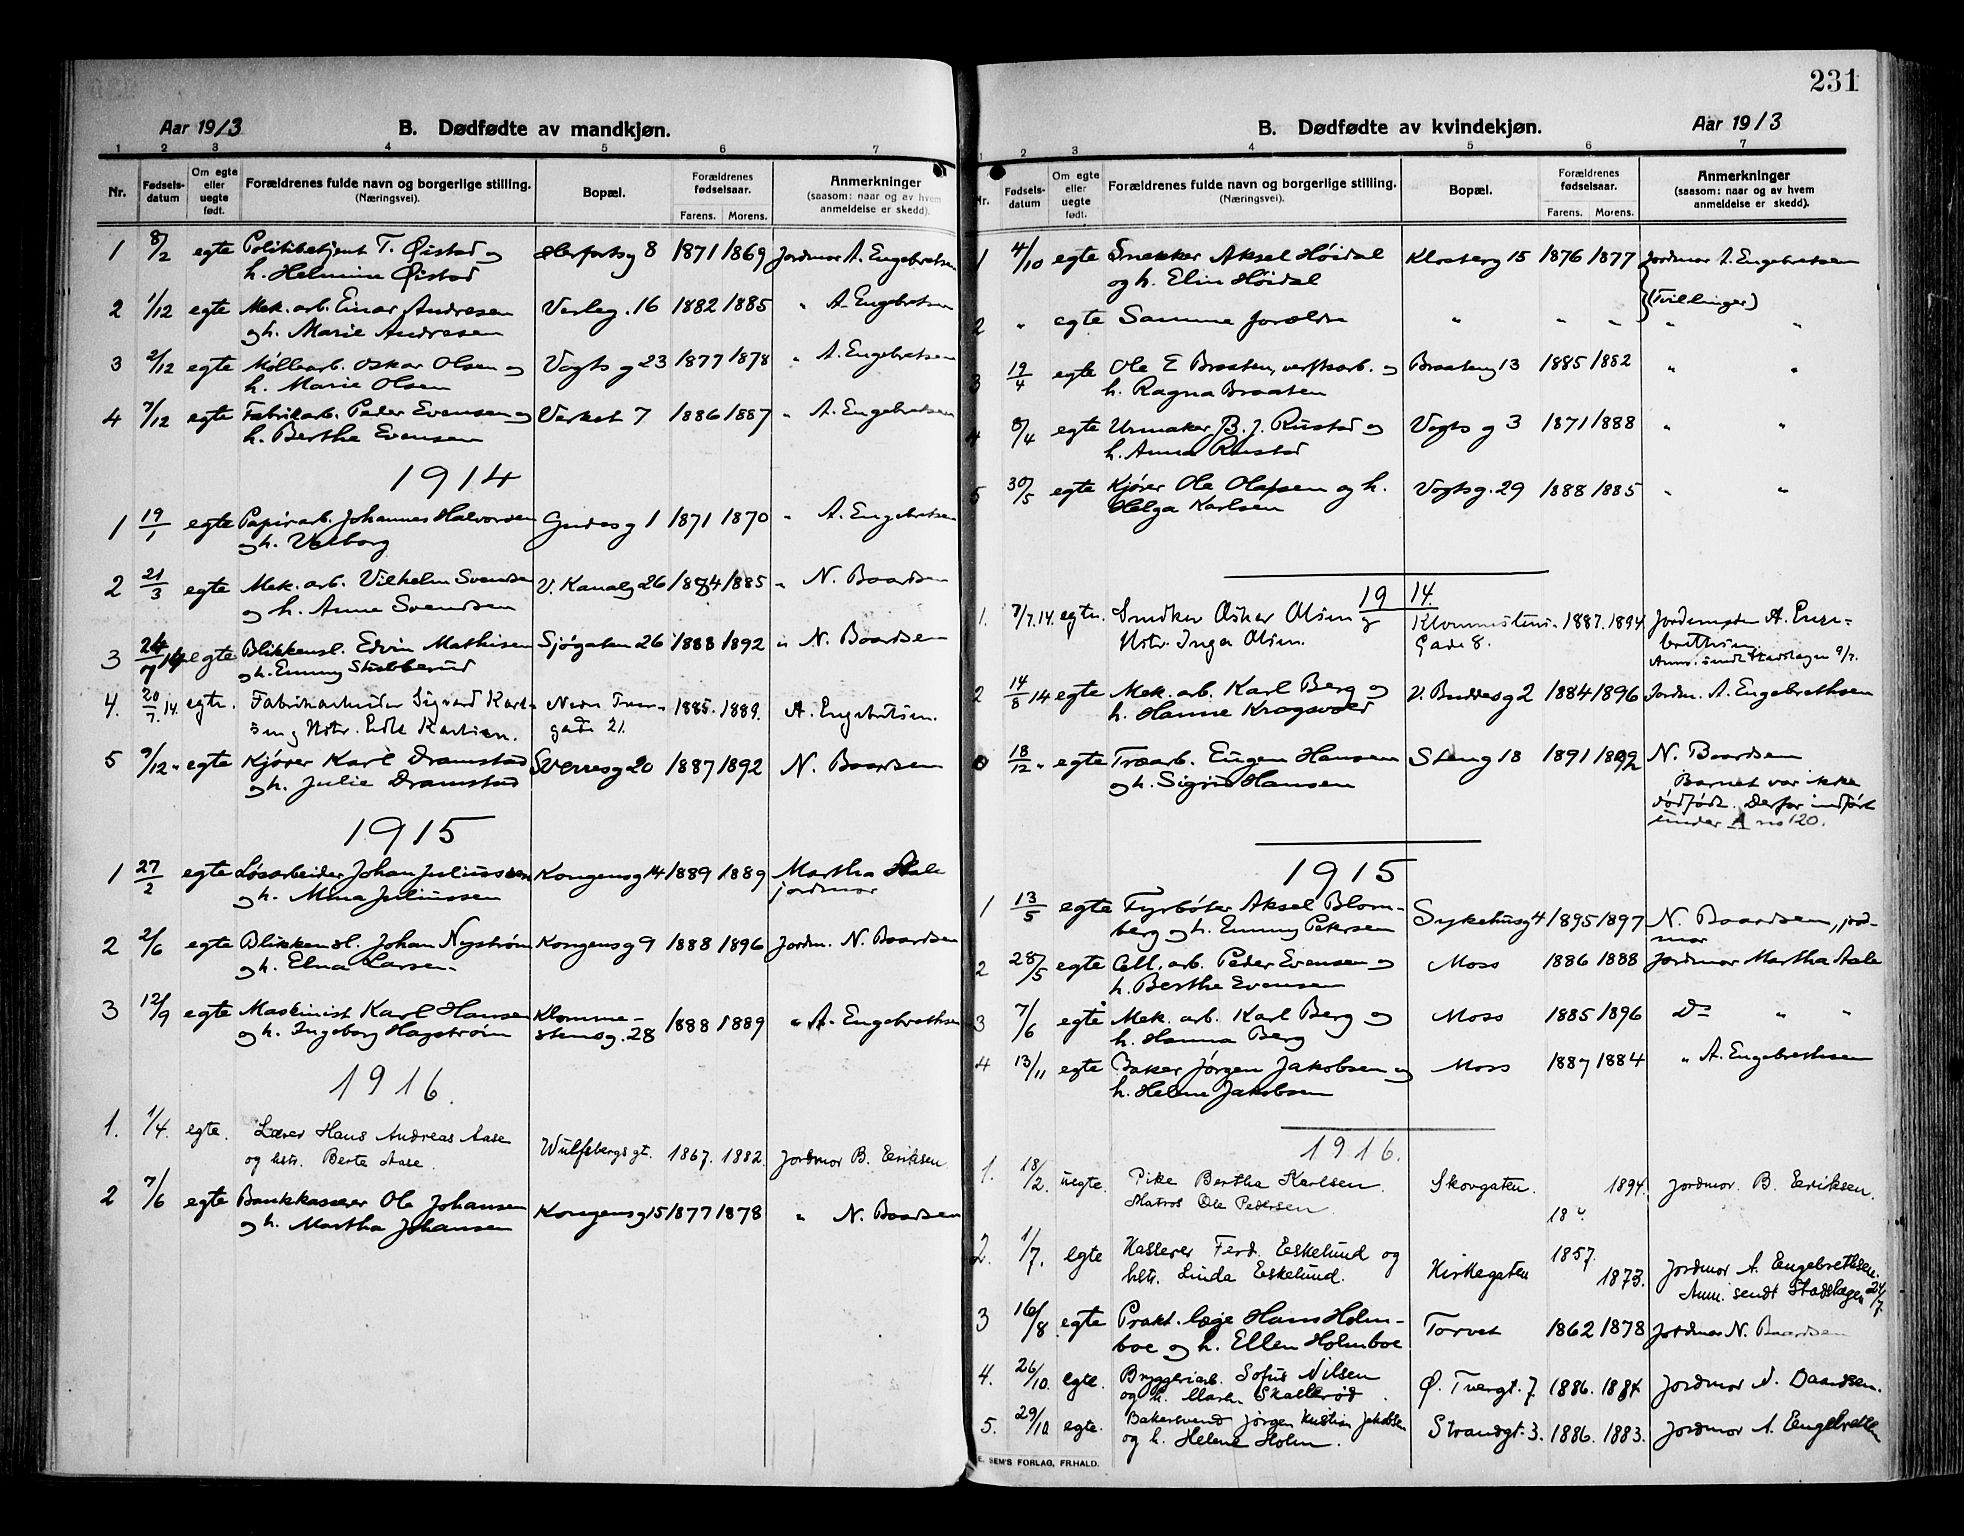 231
Aar 1913 B. Dødfødte av mandkjøn.
1 2 3 4 5 6 7
Nr. Fødsels-datum Om egte eller uegte født. Forældrenes fulde navn og borgerlige stilling. (Næringsvei). Bopæl. Forældrenes fødselsaar. Farens. Morens. Anmerkninger (saasom: naar og av hvem anmeldelse er skedd).
1 8/2 egte Politibetjent T. Øistad og Herfortsg 8 1871 1869 Jordmor A. Engebretsen
h. Helmine Øistad
2 1/12 egte Mek. arb. Einar Andresen Verleg. 16 1882 1885 " A. Engebretsen
og h. Marie Andresen
3 2/12 egte Møllearb. Oskar Olsen og Vogts g 23 1877 1878 " A. Engebretsen
h. Marie Olsen
4 7/12 egte Fabrikarb. Peder Evensen og Verket 7 1886 1887 " A. Engebretsen
h. Berthe Evensen
1914
1 19/1 egte Papirarb. Johannes Halvorsen Gudesg 1 1871 1870 " A. Engebretsen
og h. Valborg
2 21/3 egte Mek. arb. Vilhelm Svendsen V. Kanalg 26 1884 1885 " N. Baardsen
og h. Anne Svendsen
3 egte Blikkensl. Edvin Mathisen Sjøgaten 26 1888 1892 " N. Baardsen
og h. Emmy Stubberud
4. 20/7. 14. egte. Fabrikarbeider Sigvard Karl- Nedre Tver- 1885. 1889. A. Engebretsen.
sen og Hstr. Karlsen. gade 21.
5 9/12 " egte Kjører Karl Dramstad Sverresg 20 1887 1892 N. Baardsen
og h. Julie Dramstad
1915
1 27/2 egte Løsarbeider Johan Juliussen Kongensg 14 1889 1889 Martha Aale
og h. Mina Juliussen jordmor
2 2/6 egte Blikkensl. Johan Nystrøm Kongensg 9 1888 1896 Jordm. N. Baardsen
og h. Elna Larsen.
3 12/9 egte Maskinist Karl Hansen Klomme- 1888 1889 " A. Engebrethsen
og h. Ingeborg Hagstrøm stensg. 28
1916.
1. 1/4. egte. Lærer Hans Andreas Aase Wulfsbergs gt. 1867. 1882. Jordmor B. Eriksen.
og hstr. Berte Aase.
2 7/6 egte Bankkasserer Ole Johansen Kongensg 15 1877 1878 " N. Baardsen
og h. Martha Johansen
B. Dødfødte av kvindekjøn. Aar 1913
1 2 3 4 5 6 7
Nr. Fødsels-datum Om egte eller uegte født. Forældrenes fulde navn og borgerlige stilling. (Næringsvei). Bopæl. Forældrenes fødselsaar. Farens. Morens. Anmerkninger (saasom: naar og av hvem anmeldelse er skedd).
1 4/10 egte Snekker Aksel Høidal Klosterg 15 1876 1877 Jordmor A. Engebretsen
og h. Elin Høidal (Tvillinger)
2 " egte Samme foreldre " " " " "
3 19/4 egte Ole E Braaten, verftsarb. og Braateng 13 1885 1882 " "
h. Ragna Braaten
4 8/4 egte Urmaker B. J. Rustad og Vogts g 3 1871 1888 " "
h. Anna Rustad
5 30/5 egte Kjører Ole Olafsen og h. Vogtsg. 29 1888 1885 " "
Helga Karlsen
1914
1. 7/7.14. egte. Snedker Oskar Olsen og Klommestens- 1887. 1894 A. Enge-
Hstr. Inga Olsen. Gade 8. brethsen.
Anm. sendt Stadslægen 9/7.
2 14/8 14 egte Mek. arb. Karl Berg og V. Buddesg 2 1884 1896 Jordm. A. Engebrethsen
h. Hanne Kragsvold
18/12 " egte Træarb. Eugen Hansen Steng 18 1891 1892 N. Baardsen
og h. Sigrid Hansen Barnet var ikke
dødfødt. Derfor indført
under A no 120.
1915
1 13/5 egte Fyrbøter Aksel Blom- Sykehusg 4 1895 1897 N. Baardsen, jord-
berg og h. Emmy Petersen mor
2 28/5 egte Cell. arb. Peder Evensen og Moss 1886 1888 Jordmor Martha Aale
h. Berthe Evensen
3 7/6 egte Mek. arb. Karl Berg og Moss 1885 1896 Do " "
h. Hanna Berg
4 13/11 egte Baker Jørgen Jakobsen og Moss 1887 1884 " A. Engebrethsen
h. Helene Jakobsen
1916.
1. 18/2. uegte. Pike Bertha Karlsen. Skovgaten. 1894. Jordmor. B. Eriksen.
Matros Ole Pedersen. 18 "
2. 1/7. egte Kasserer Ferd. Eskelund og Kirkegaten 1857. 1873. Jordmor A. Engebrethsen.
hstr. Linda Eskelund. Anm. sendt Stadslægen 24/7.
3 16/8 egte Prakt. læge Hans Holm- Torvet 1862 1878 Jordmor N. Baardsen
boe og h. Ellen Holmboe
4. 26/10. egte. Bryggeriarb. Sofus Nilsen Ø. Tvergt. 7. 1886. 1884 Jordmor N. Baardsen.
og h. Skallerød.
5. 29/10. egte. Bakersvend Jørgen Kristian Jakobsen Strandgt. 3. 1886. 1883. Jordmor A. Engebretsen
og h. Helene Holm.
E. SEM'S FORLAG, FR.HALD.